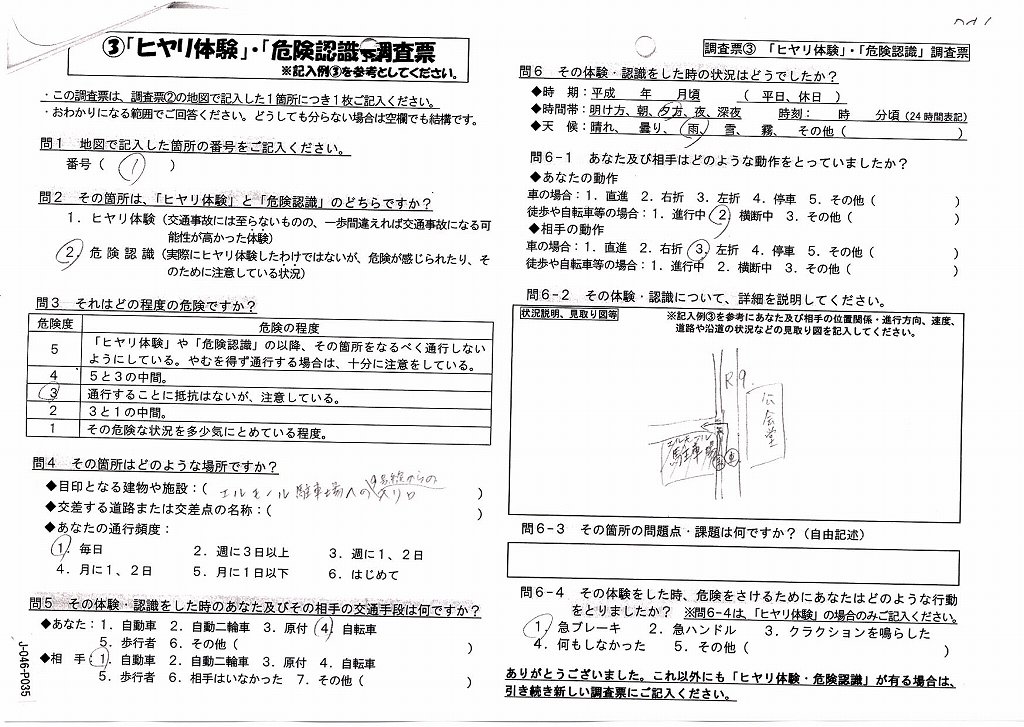 ③「ヒヤリ体験」・「危険認識」調査票
※記入例③を参考としてください。
・この調査票は、調査票②の地図で記入した1箇所につき1枚ご記入ください。
・おわかりになる範囲でご回答ください。どうしても分らない場合は空欄でも結構です。
問1 地図で記入した箇所の番号をご記入ください。
番号（ 1 ）
問2 その箇所は、「ヒヤリ体験」と「危険認識」のどちらですか？
1．ヒヤリ体験（交通事故には至らないものの、一歩間違えれば交通事故になる可
能性が高かった体験）
2．危険認識（実際にヒヤリ体験したわけではないが、危険が感じられたり、そ
のために注意している状況）
問3 それはどの程度の危険ですか？
危険度 危険の程度
5 「ヒヤリ体験」や「危険認識」の以降、その箇所をなるべく通行しない
ようにしている。やむを得ず通行する場合は、十分に注意をしている。
4 5と3の中間。
3 通行することに抵抗はないが、注意している。
2 3と1の中間。
1 その危険な状況を多少気にとめている程度。
問4 その箇所はどのような場所ですか？
◆目印となる建物や施設：（ エルモノル駐車場への9号線からの入り口 ）
◆交差する道路または交差点の名称：（ ）
◆あなたの通行頻度：
1．毎日 2．週に3日以上 3．週に1、2日
4．月に1、2日 5．月に1日以下 6．はじめて
問5 その体験・認識をした時のあなた及びその相手の交通手段は何ですか？
◆あなた：1．自動車 2．自動二輪車 3．原付 4．自転車
5．歩行者 6．その他（ ）
◆相 手：1．自動車 2．自動二輪車 3．原付 4．自転車
5．歩行者 6．相手はいなかった 7．その他（ ）
J-046-P035
調査票③ 「ヒヤリ体験」・「危険認識」調査票
問6 その体験・認識をした時の状況はどうでしたか？
◆時 期：平成 年 月頃 （ 平日、休日 ）
◆時間帯：明け方、朝、夕方、夜、深夜 時刻： 時 分頃（24時間表記）
◆天 候：晴れ、 曇り、 雨、 雪、 霧、 その他（ ）
問6-1 あなた及び相手はどのような動作をとっていましたか？
◆あなたの動作
車の場合：1．直進 2．右折 3．左折 4．停車 5．その他（ ）
徒歩や自転車等の場合：1．進行中 2．横断中 3．その他（ ）
◆相手の動作
車の場合：1．直進 2．右折 3．左折 4．停車 5．その他（ ）
徒歩や自転車等の場合：1．進行中 2．横断中 3．その他（ ）
問6-2 その体験・認識について、詳細を説明してください。
状況説明、見取り図等
※記入例③を参考にあなた及び相手の位置関係・進行方向、速度、
道路や沿道の状況などの見取り図を記入してください。
R9.
公会堂
エルモノル
駐車場
車
問6-3 その箇所の問題点・課題は何ですか？（自由記述）
問6-4 その体験をした時、危険をさけるためにあなたはどのような行動
をとりましたか？ ※問6-4は、「ヒヤリ体験」の場合のみご記入ください。
1．急ブレーキ 2．急ハンドル 3．クラクションを鳴らした
4．何もしなかった 5．その他（ ）
ありがとうございました。これ以外にも「ヒヤリ体験・危険認識」が有る場合は、
引き続き新しい調査票にご記入ください。